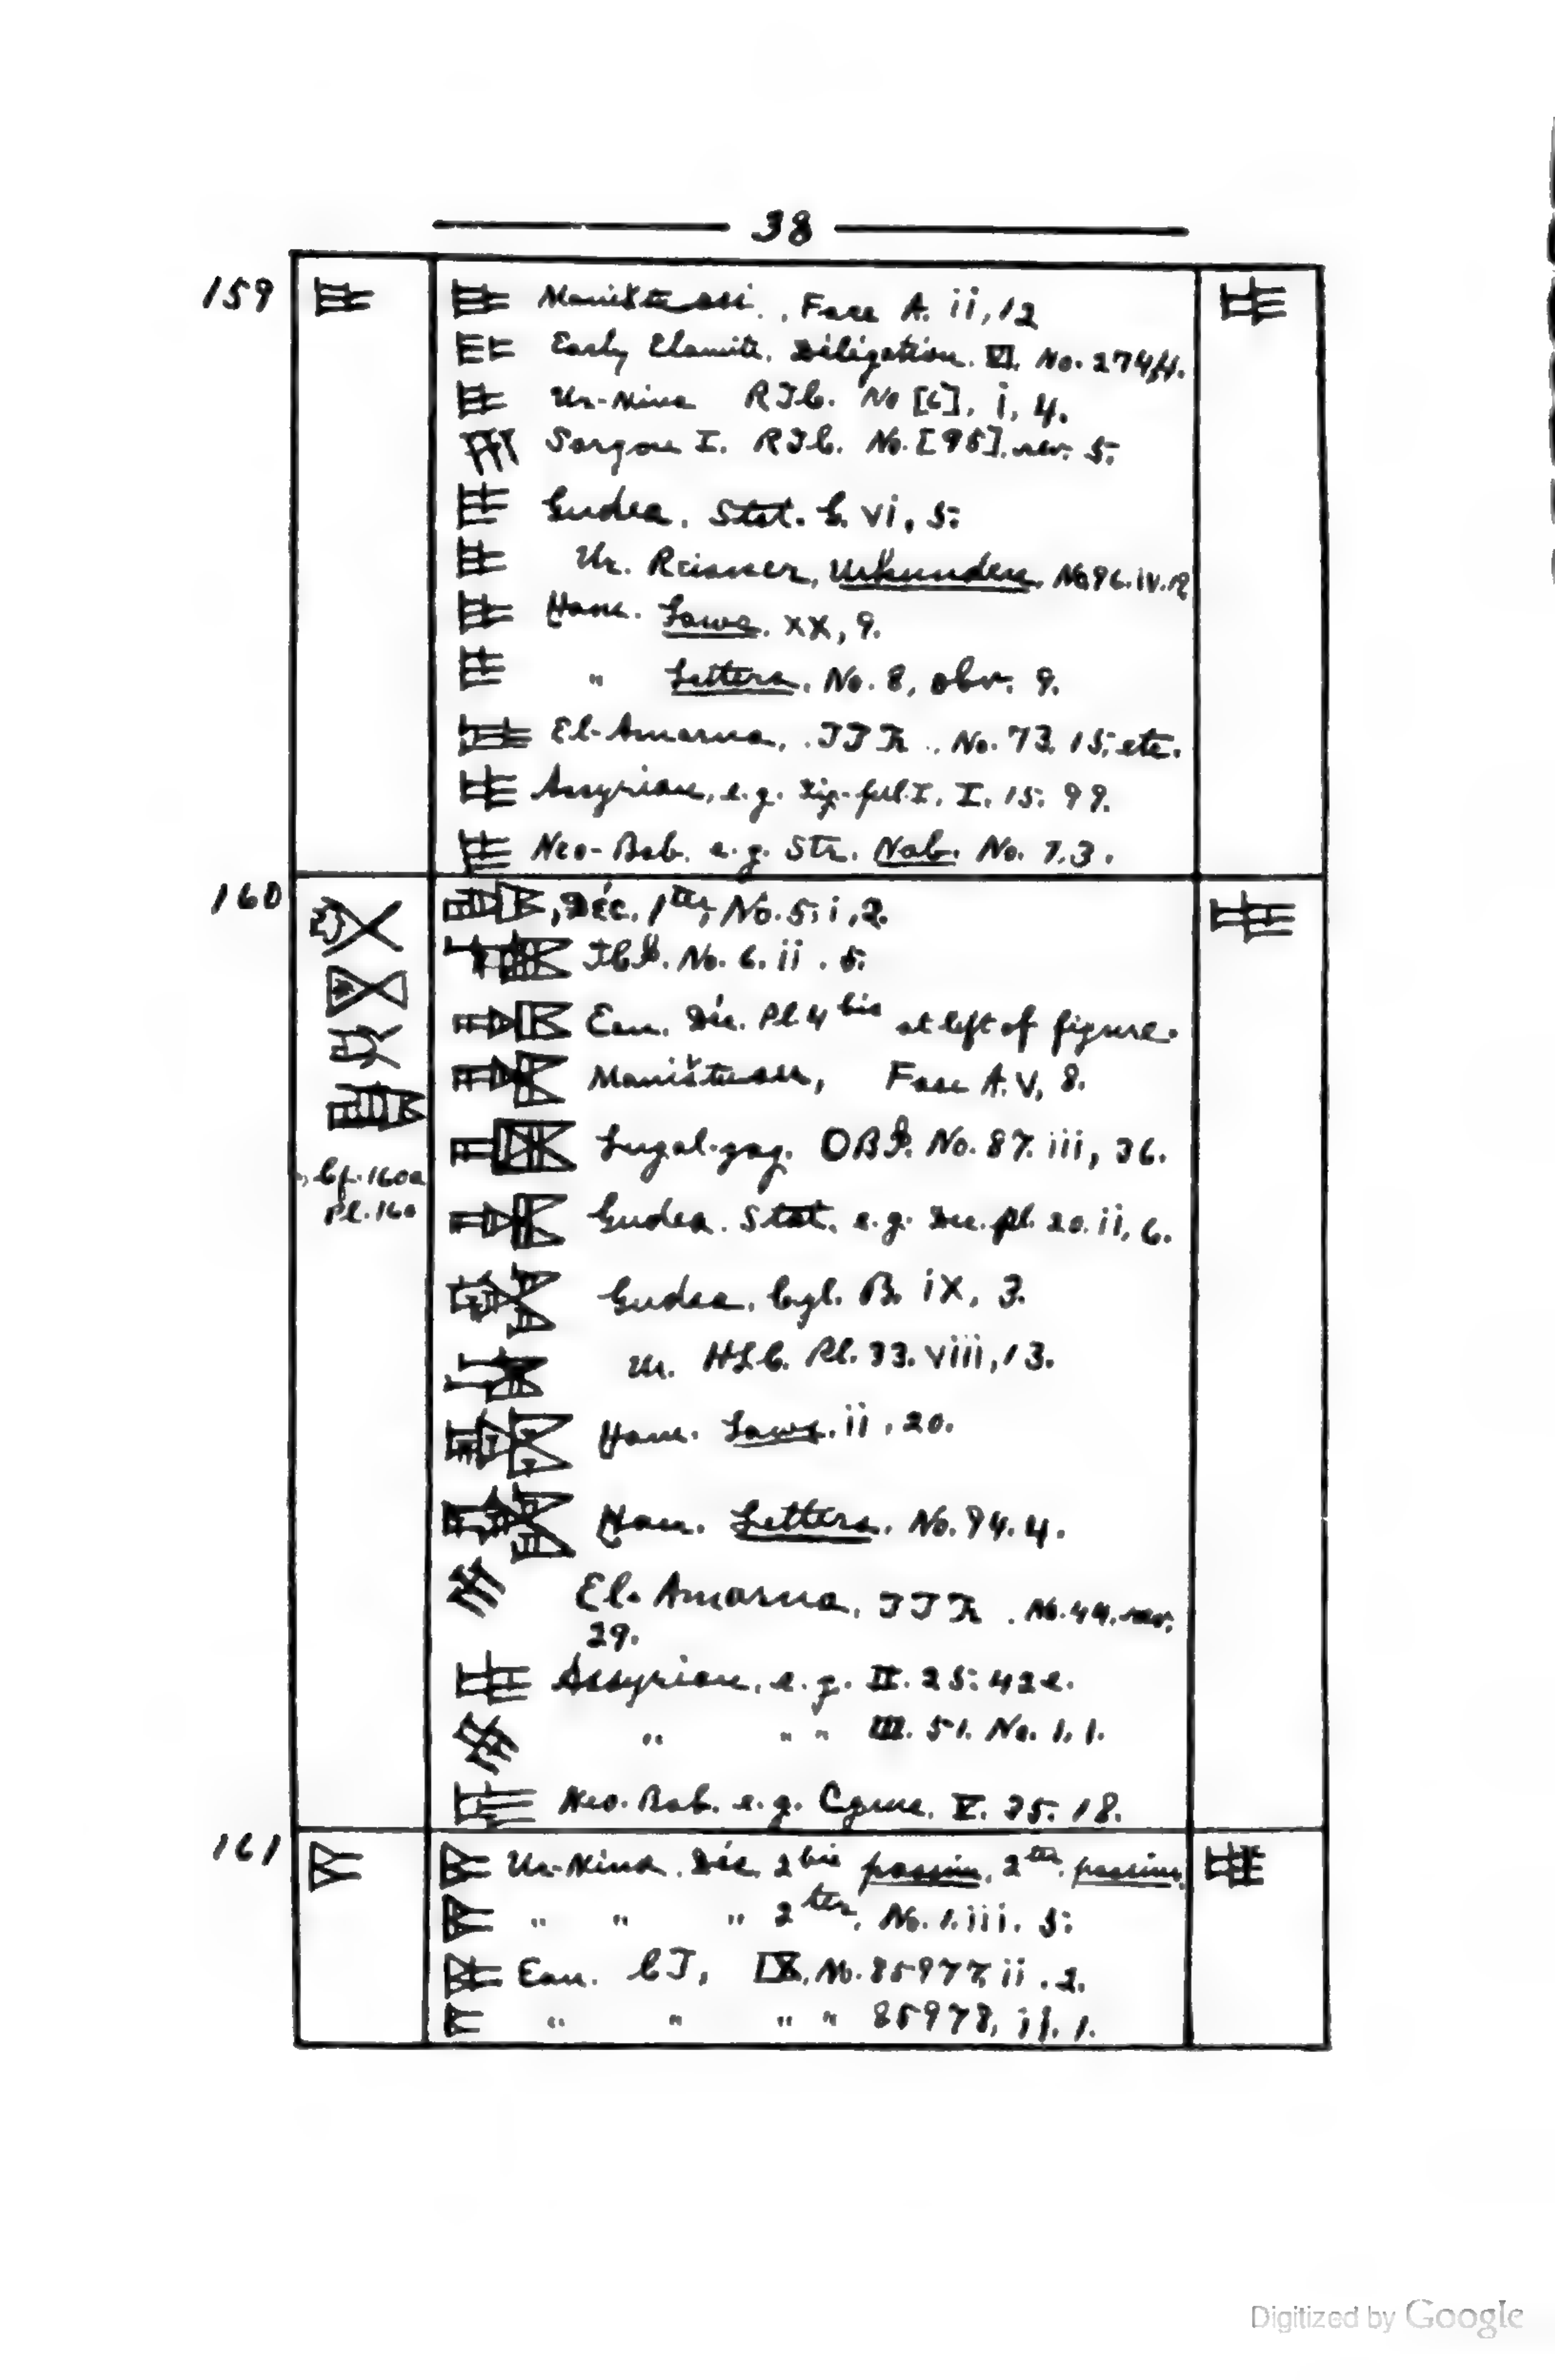 38
159
Maništusu, Face A. ii, 12
Early Elamite, Délégation. VI. No. 274/4.
Ur-Nina RTC. No [6], i, 4.
Sargon I. RTC. No. [95]. rev. 5.
Gudea, Stat. G. vi, 5.
Ur. Reisner, Urkunden, No 96. iv. 12
Ham. Laws. XX, 9.
" Letters, No. 8, obv. 9.
El-Amarna, No. 73. 15, etc.
Assyrian, e.g. Tig-pil. I, I. 15. 99.
Neo-Bab. e.g. Str. Nab. No. 7.3.
160
, Déc. 1ter, No. 5. i, 2.
No. 6. ii. 5.
Ean. Déc. Pl. 4 bis at left of figure.
Maništusu, Face A. V, 8.
Lugal-zag. OBI. No. 87. iii, 36.
Cf. 160a
Pl. 160
Gudea. Stat. e.g. Dec. pl. 20. ii, 6.
Gudea, Cyl. B. ix, 3.
Ur. HLC. Pl. 33. viii, 13.
Ham. Laws. ii, 20.
Ham. Letters, No. 94. 4.
El-Amarna, No. 44. rev.
29.
Assyrian, e.g. II. 25. 42 e.
" " " III. 51. No. 1, 1.
Neo-Bab. e.g. Cyrus, V. 35. 18.
161
Ur-Nina. Déc. 2bis passim, 2ter, passim.
" " " 2 ter, No. 1. iii. 5.
Ean. CT, IX, No. 85977. ii. 2.
" " " " 85978, ii. 1.
Digitized by Google